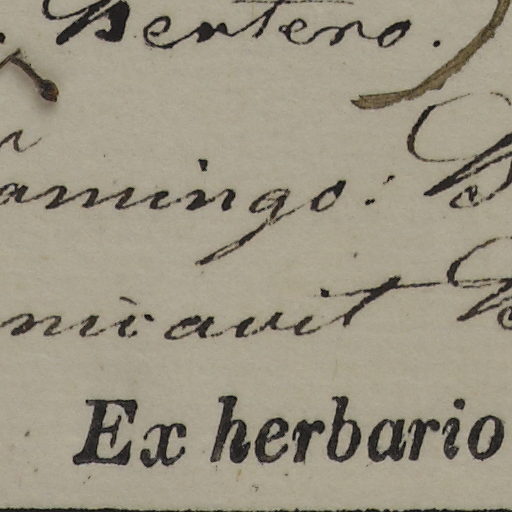 Bertero.
amingo: B
nicavit B
Ex herbario